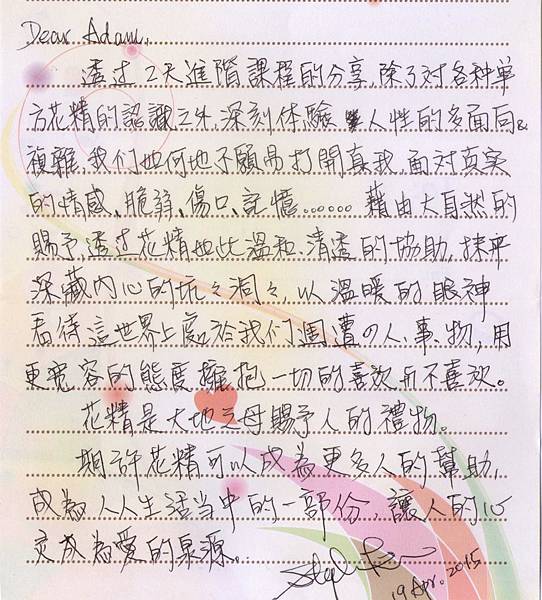 Dear Adam,
透过2天進階課程的分享,除了对各种单
方花精的認識之外,深刻体驗人性的多面向&
複雜,我们如何地不願易打開真我,面对真实
的情感、脆弱、傷口、記憶...... 藉由大自然的
賜予,透过花精如此溫和、清透的協助,抹平
深藏内心的坑々洞々,以溫暖的眼神
看待這世界上處於我们週遭の人、事、物,用
更宽容的態度擁抱一切的喜欢而不喜欢。
花精是大地之母賜予人的禮物。
期許花精可以成為更多人的幫助,
成為人人生活当中的一部份,讓人的心
灵成為愛的泉源。
19 Apr. 2015